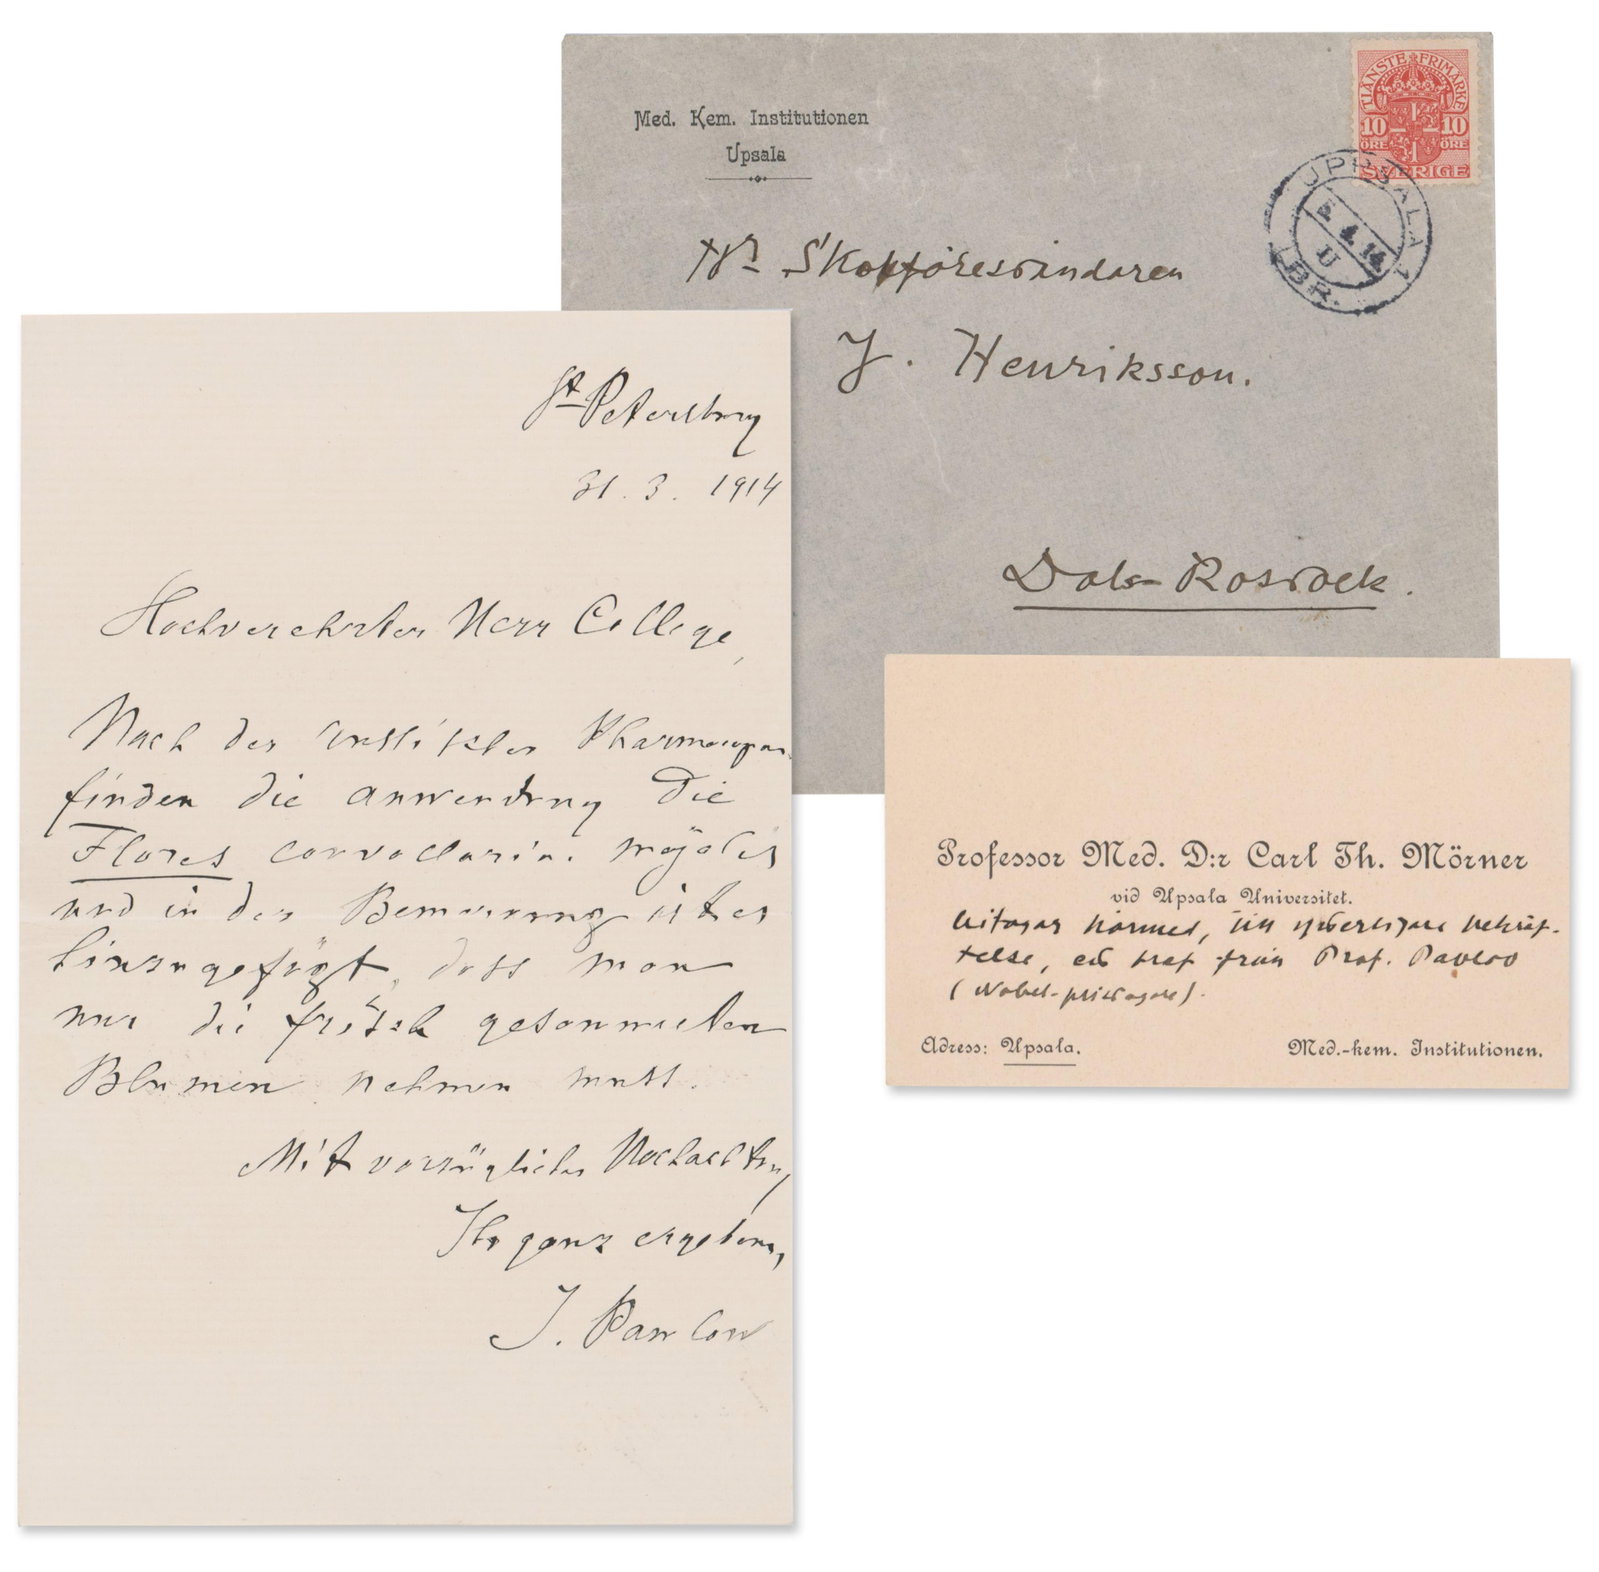 St Petersburg
31. 3. 1914
Hochverehrter Herr College,
Nach der Pharmacopoe
finden die anwendung die
Flores convallariae majalis
und in der Bemerkung ist es
hinzugefügt, dass man
nur die frisch gesammelten
Blumen nehmen muss.
Mit vorzüglicher Hochachtung
Ihr ganz ergebener
J. Pawlow
Med. Kem. Institutionen
Upsala
TJÄNSTE FRIMÄRKE
10 10
ÖRE ÖRE
SVERIGE
UPPSALA 1
14
LBR.
Hr Skolföreståndaren
J. Henriksson.
Dals-Rostock.
Professor Med. D:r Carl Th. Mörner
vid Upsala Universitet.
bifogar härmed, till ytterligare bekräf-
telse, ett bref från Prof. Pavlov
(Nobel-pristagare).
Adress: Upsala. Med.-kem. Institutionen.